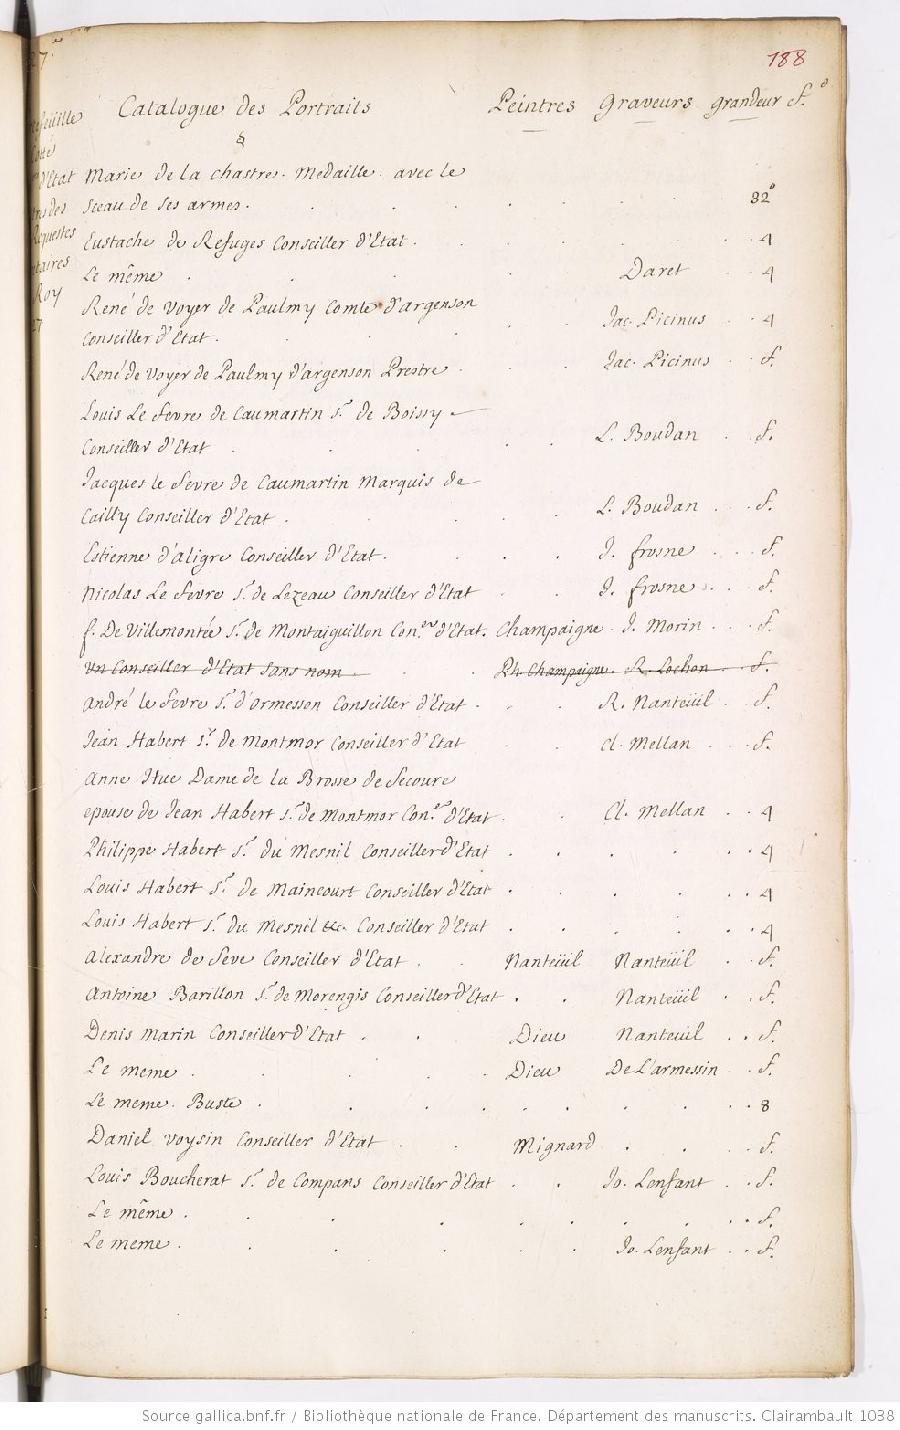 188
Catalogue des Portraits Peintres Graveurs grandeur f.°
Marie de la chastre. Medaille avec le
Sceau de ses armes. 32°
Eustache de Refuges Conseiller d'Etat. 4
Le même Daret 4
René de Voyer de Paulmy Comte d'argenson
Conseiller d'Etat. Jac. Picinus 4
René de Voyer de Paulmy d'argenson Prestre Jac. Picinus f.
Louis Le fevre de Caumartin S.r de Boissy
Conseiller d'Etat L. Boudan f.
Jacques le fevre de Caumartin Marquis de
Cailly Conseiller d'Etat. L. Boudan f.
Estienne d'aligre Conseiller d'Etat. J. frosne f.
Nicolas Le fevre S.r de Lezeau Conseiller d'Etat J. frosne f.
f. De Villemontée S.r de Montaiguillon Con.er d'Etat. Champaigne J. Morin f.
Un Conseiller d'Etat sans nom Ph. Champaigne R. Lochon f.
andré le fevre S.r d'ormesson Conseiller d'Etat R. Nanteüil f.
Jean Habert S.r de Montmor Conseiller d'Etat Cl. Mellan f.
Anne Hue Dame de la Brosse de Secoure
epouse de Jean Habert S.r de Montmor Con.er d'Etat Cl. Mellan 4
Philippe Habert S.r du Mesnil Conseiller d'Etat 4
Louis Habert S.r de Maincourt Conseiller d'Etat 4
Louis Habert S.r du Mesnil &c. Conseiller d'Etat 4
Alexandre de Seve Conseiller d'Etat Nanteüil Nanteüil f.
Antoine Barillon S.r de Morengis Conseiller d'Etat Nanteüil f.
Denis Marin Conseiller d'Etat Dieu Nanteuil f.
Le meme Dieu De L'armessin f.
Le meme. Buste 8
Daniel Voysin Conseiller d'Etat Mignard f.
Louis Boucherat S.r de Compans Conseiller d'Etat Jo. Lenfant f.
Le même f.
Le meme Jo. Lenfant f.
Source gallica.bnf.fr / Bibliothèque nationale de France. Département des manuscrits. Clairambault 1038